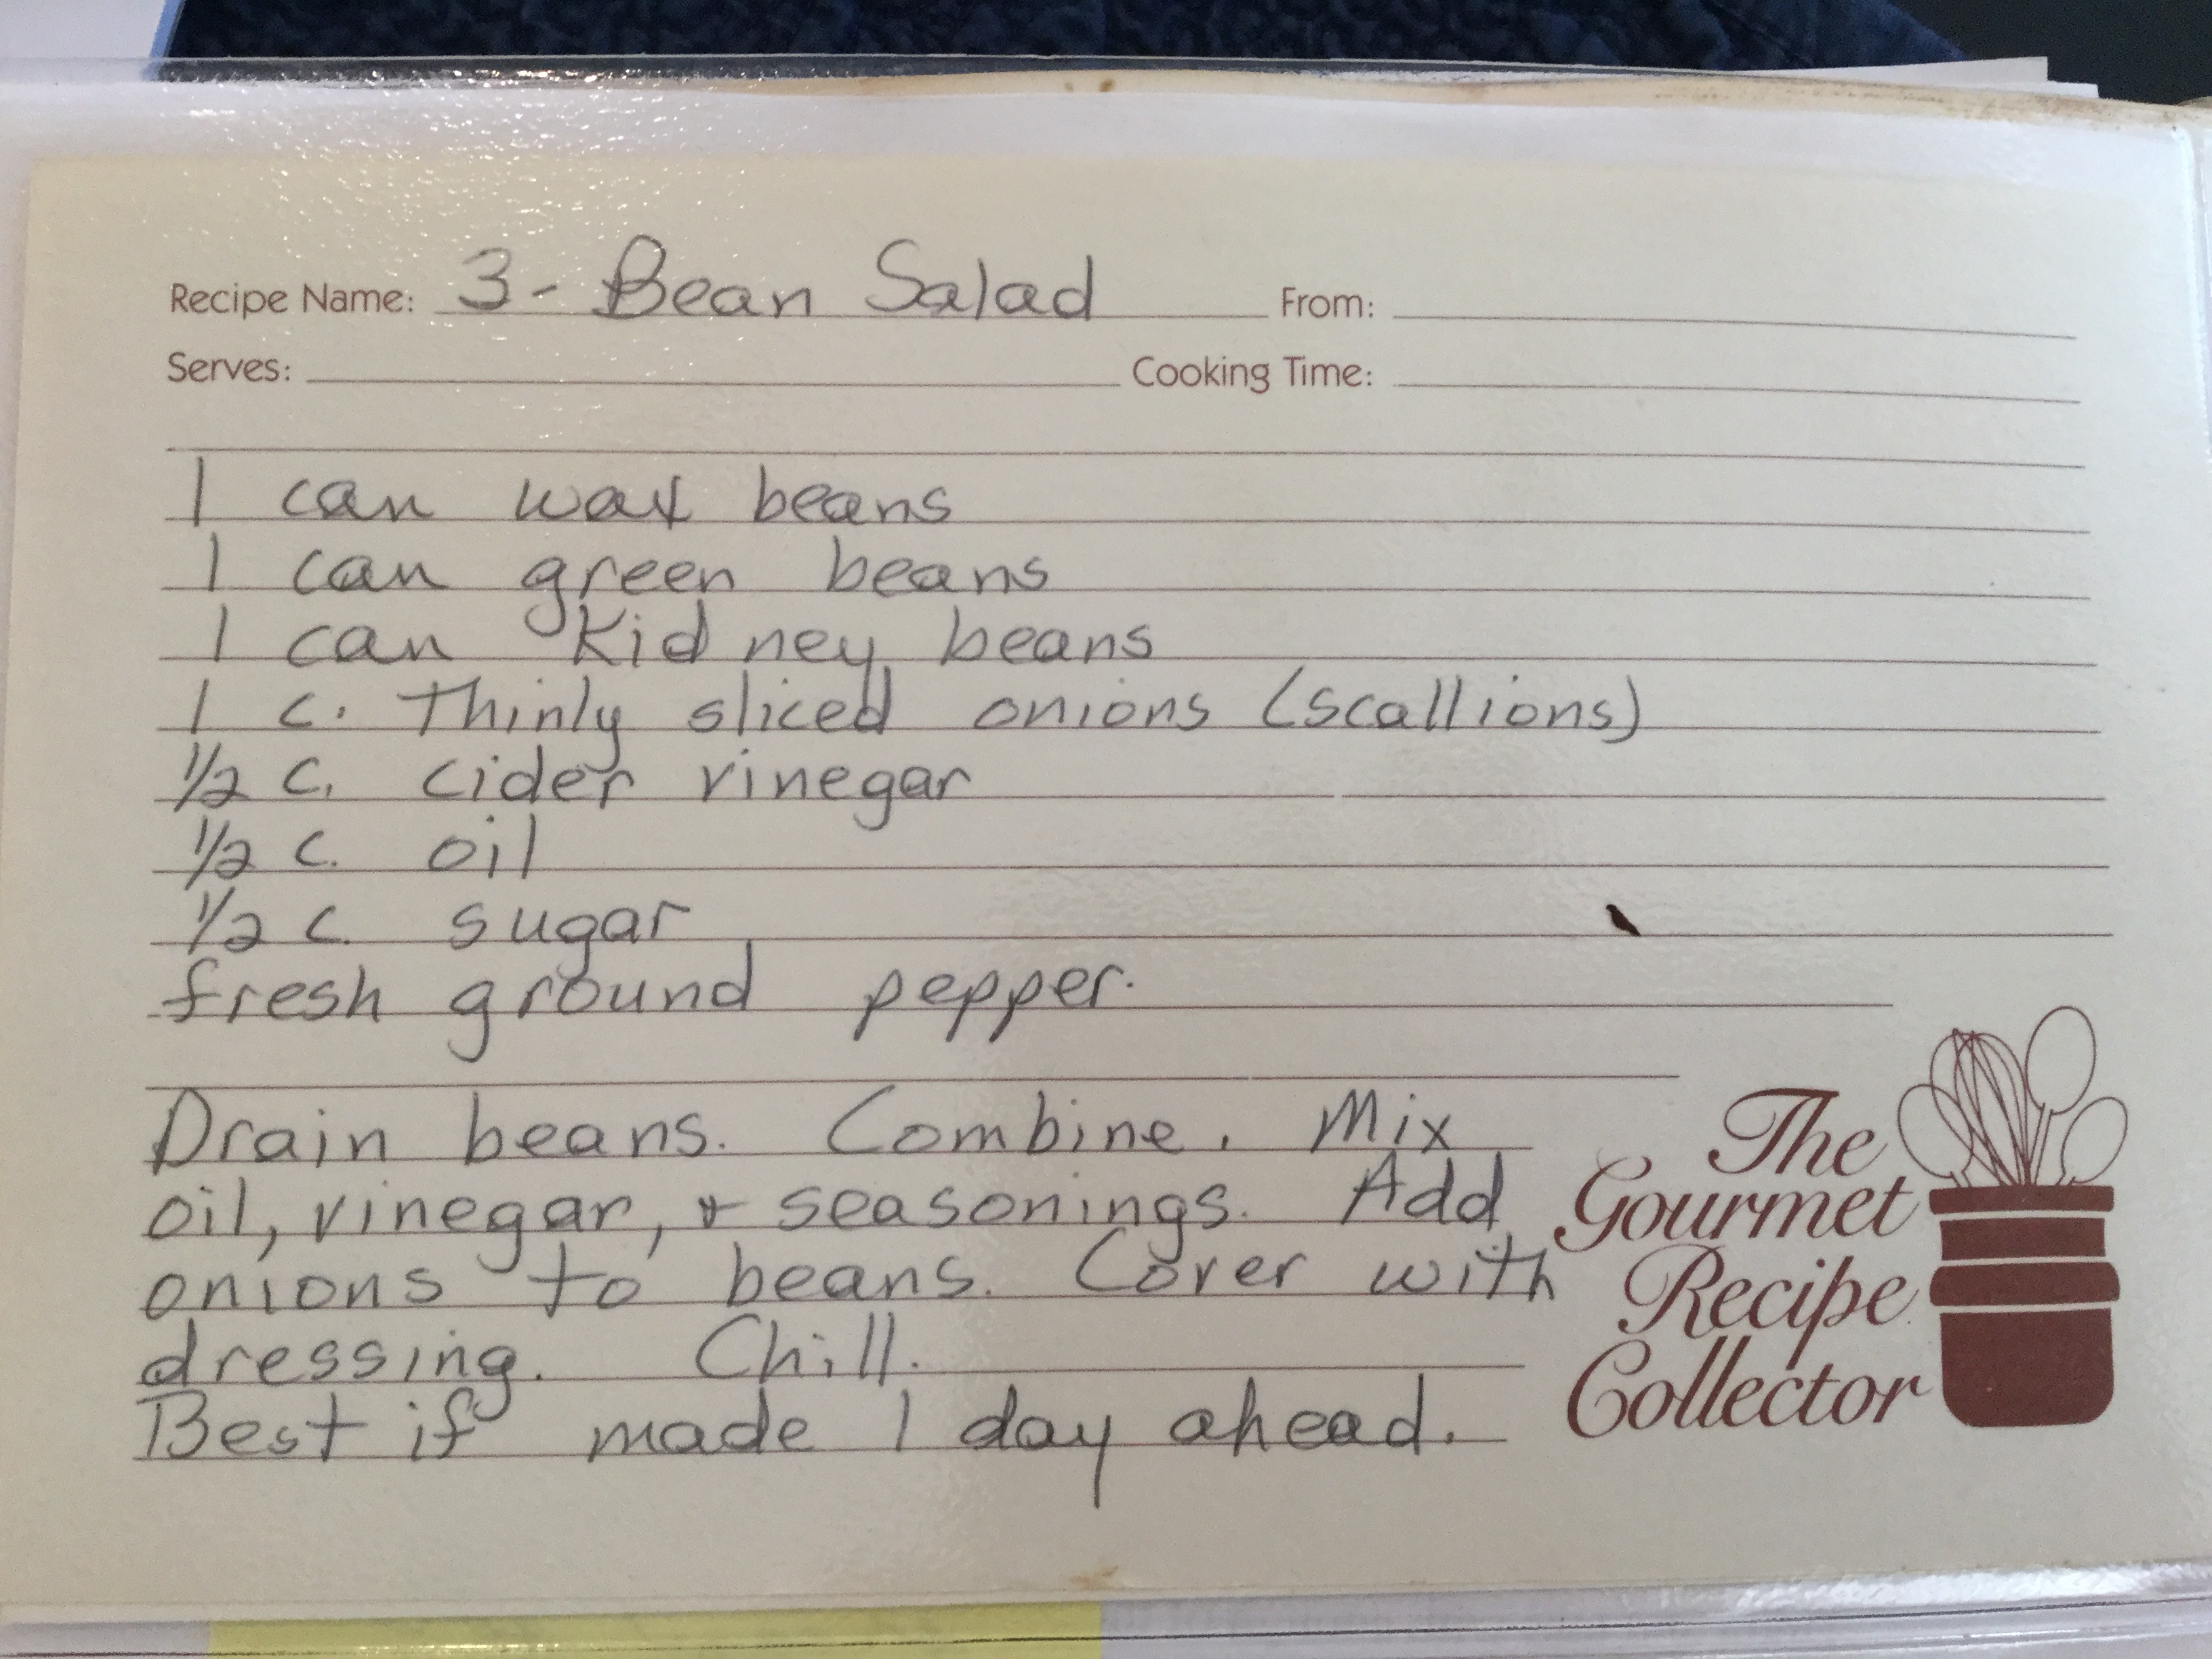 Recipe Name: 3-Bean Salad From:
Serves: Cooking Time:
1 can wax beans
1 can green beans
1 can kidney beans
1 c. thinly sliced onions (scallions)
1/2 c. cider vinegar
1/2 c. oil
1/2 c. sugar
fresh ground pepper.
Drain beans. Combine. Mix
oil, vinegar, & seasonings. Add
onions to beans. Cover with
dressing. Chill.
Best if made 1 day ahead.
The
Gourmet
Recipe
Collector